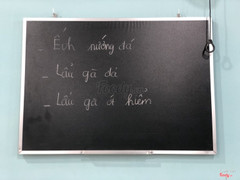 - Ếch nướng đá
- Lẩu gà đá
- Lẩu gà ớt hiểm